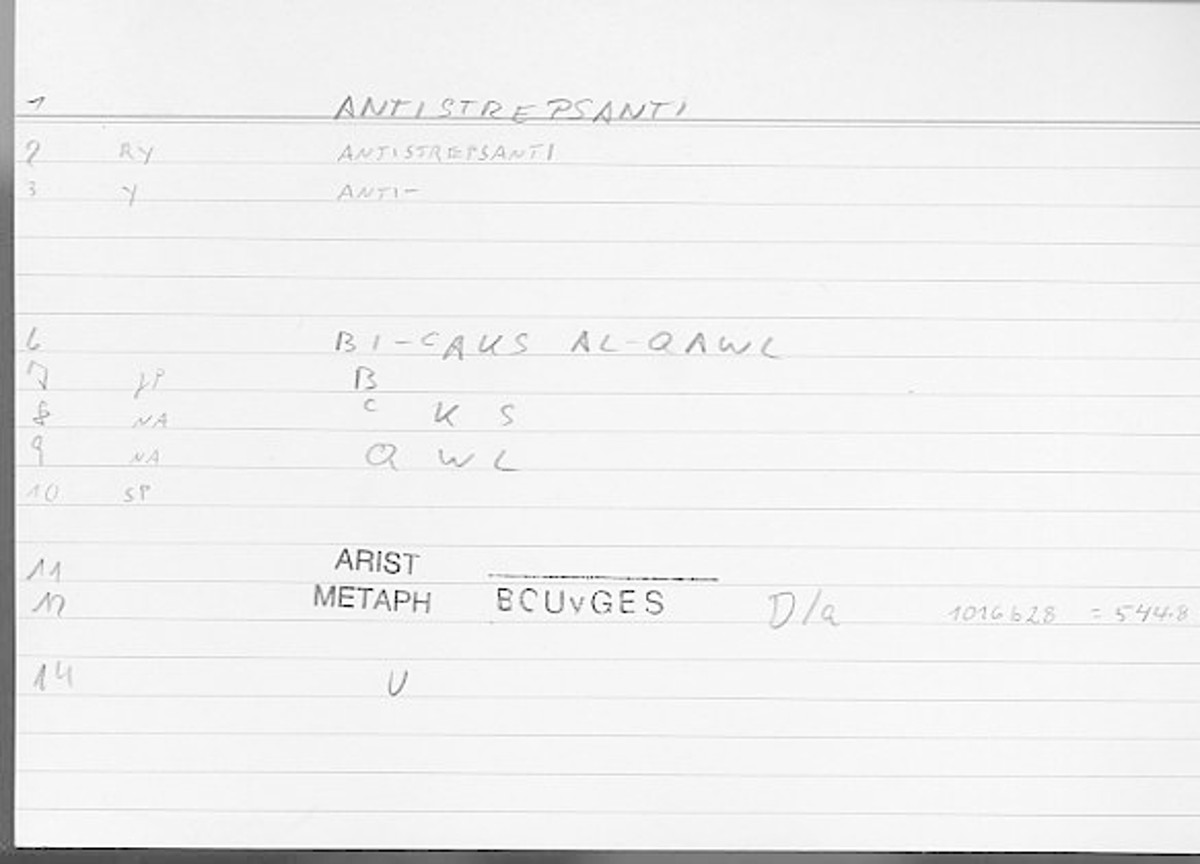 1 ANTISTREPSANTI
2 RY ANTISTREPSANTI
3 Y ANTI-
6 BI-CAKS AL-QAWL
7 B
8 NA C K S
9 NA Q W L
10 SP
11 ARIST
12 METAPH BCUvGES D/a 1016b28 = 544.8
14 U